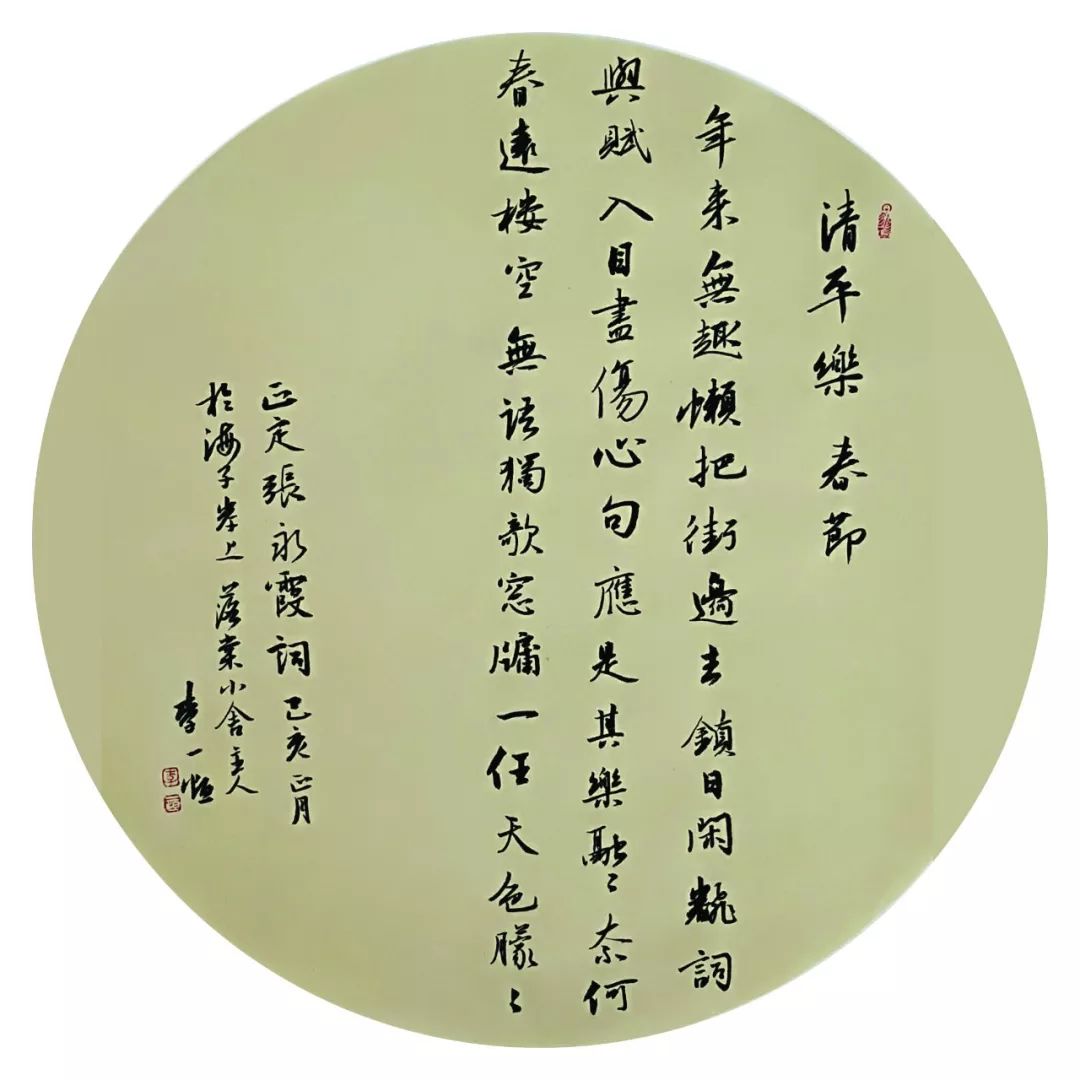 清平樂 春節
年来無趣懶把街邊去鎮日閑翻詞
與賦入目盡傷心句應是其樂融〻奈何
春遠楼空無語獨歌窓牖一任天色朦〻
正定張永霞詞己亥正月
於海子岸上落葉小舍主人
李一恒